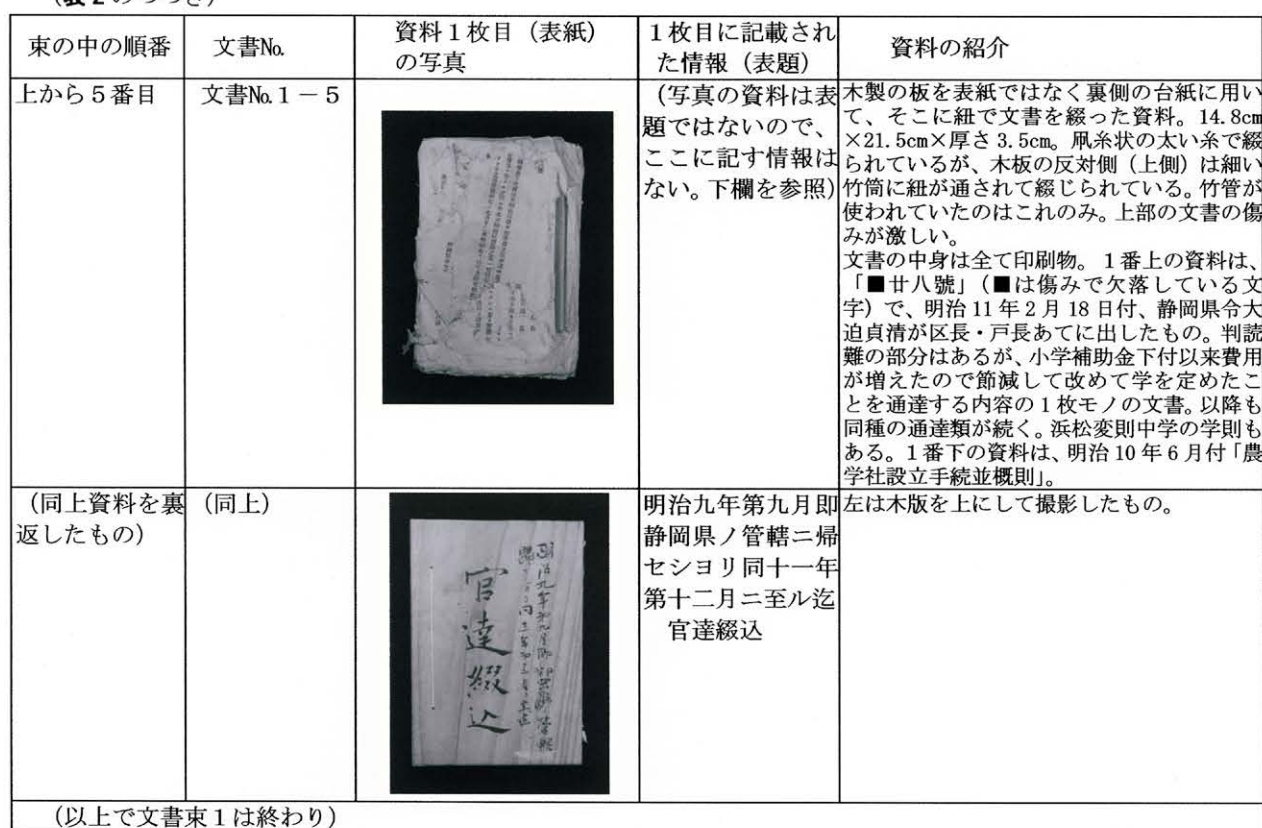 （表２のつづき）
束の中の順番
文書№
資料１枚目（表紙）
の写真
１枚目に記載され
た情報（表題）
資料の紹介
上から５番目
文書№１－５
（写真の資料は表
題ではないので、
ここに記す情報は
ない。下欄を参照）
木製の板を表紙ではなく裏側の台紙に用い
て、そこに紐で文書を綴った資料。14.8cm
×21.5cm×厚さ3.5cm。凧糸状の太い糸で綴
られているが、木板の反対側（上側）は細い
竹筒に紐が通されて綴じられている。竹管が
使われていたのはこれのみ。上部の文書の傷
みが激しい。
文書の中身は全て印刷物。１番上の資料は、
「■廿八號」（■は傷みで欠落している文
字）で、明治11年２月18日付、静岡県令大
迫貞清が区長・戸長あてに出したもの。判読
難の部分はあるが、小学補助金下付以来費用
が増えたので節減して改めて学を定めたこ
とを通達する内容の１枚モノの文書。以降も
同種の通達類が続く。浜松変則中学の学則も
ある。１番下の資料は、明治10年６月付「農
学社設立手続並概則」。
（同上資料を裏
返したもの）
（同上）
官達綴込
明治九年第九月即
静岡県ノ管轄ニ帰
セシヨリ同十一年
第十二月ニ至ル迄
官達綴込
左は木版を上にして撮影したもの。
（以上で文書束１は終わり）